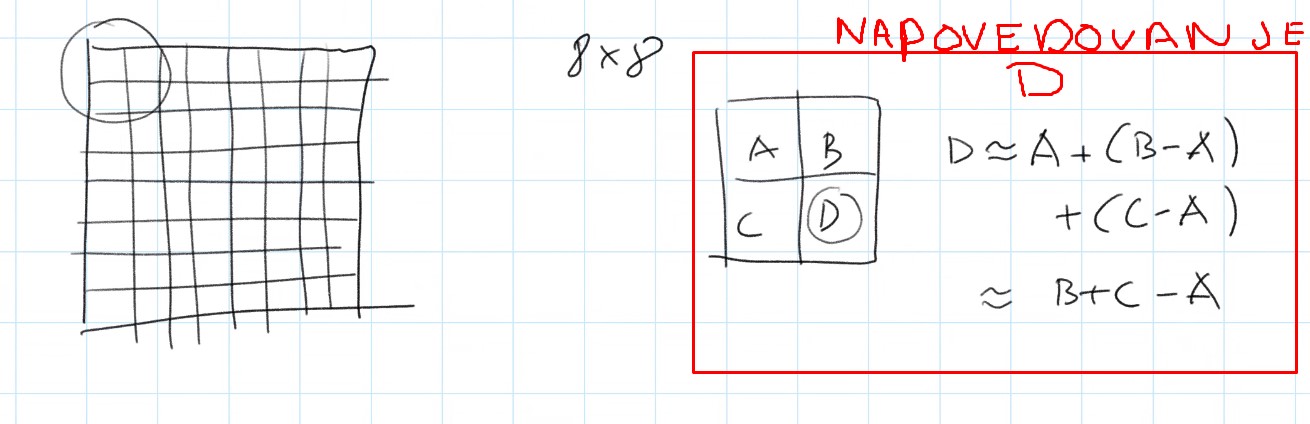 8×8
NAPOVEDOVANJE
D
A B
C D
D ≈ A + (B - A)
+ (C - A)
≈ B + C - A